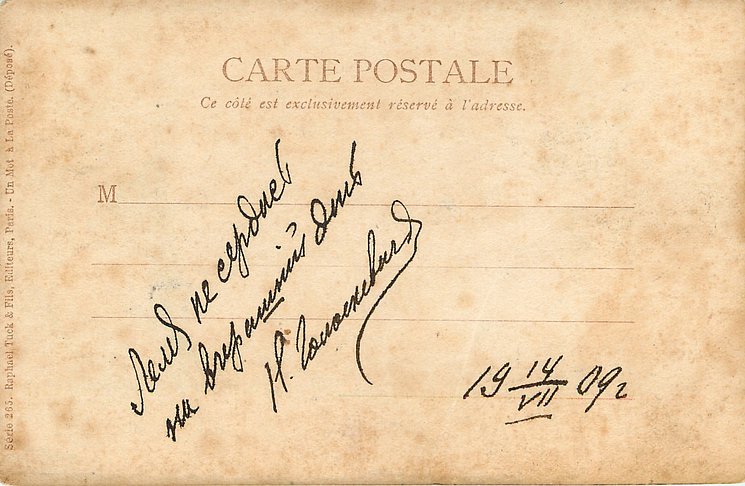 CARTE POSTALE
Ce côté est exclusivement réservé à l'adresse.
M
Леля не сердись
на вчерашній день
Н.
19 14/VII 09 г
Série 265. Raphael Tuck & Fils, Editeurs, Paris. - Un Mot à La Poste. (Déposé).